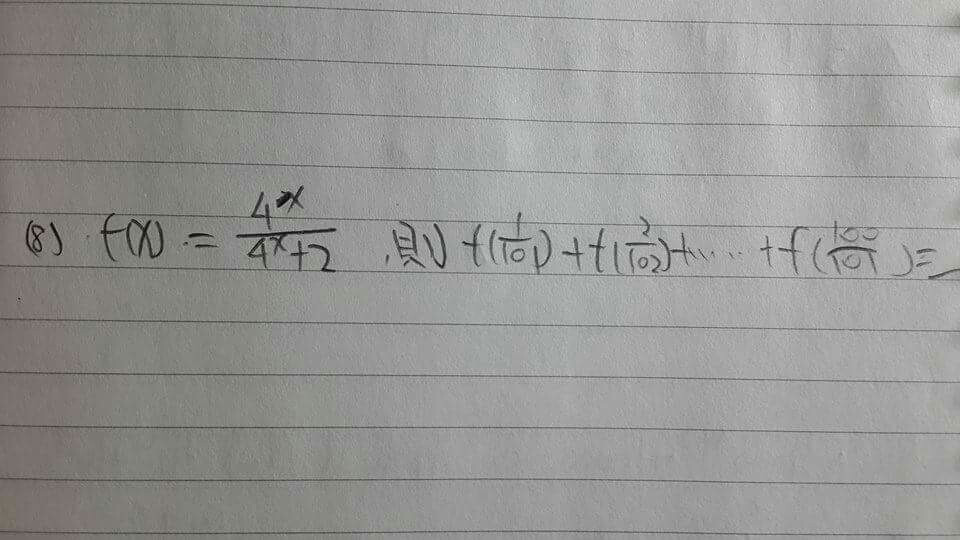 (8) f(x) = 4^x/(4^x+2), 則 f(1/101)+f(2/102)+......+f(100/101)=_